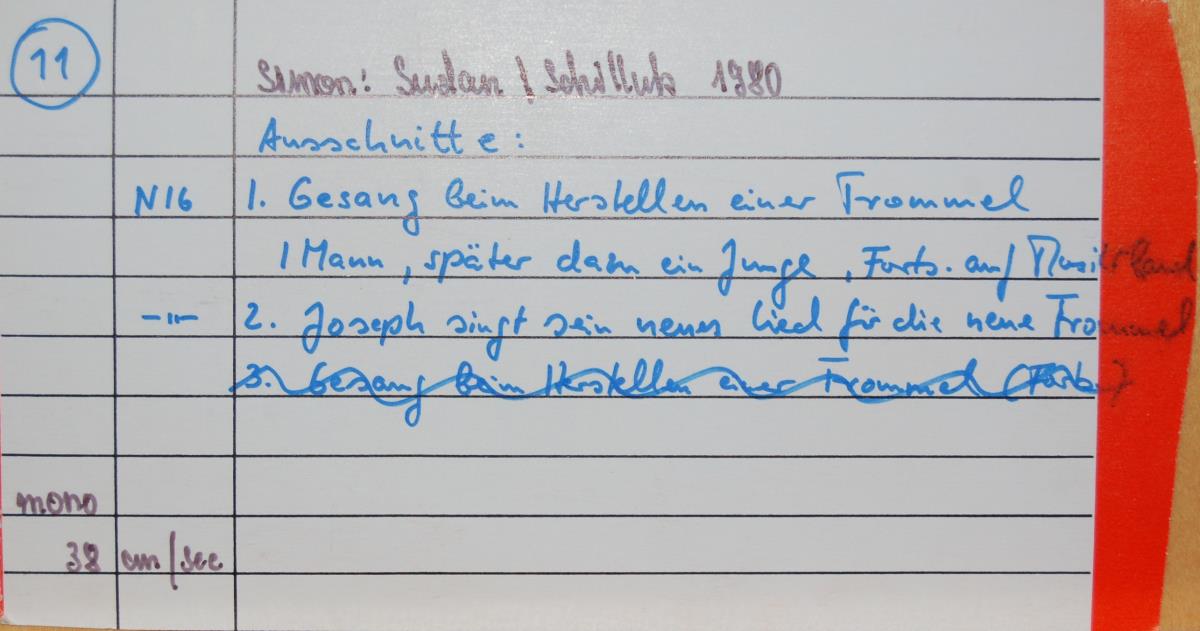 11
Simon: Sudan / Schilluk 1980
Ausschnitte:
N16 1. Gesang beim Herstellen einer Trommel
1 Mann, später dazu ein Junge, Forts. auf Musikband
-"- 2. Joseph singt sein neues Lied für die neue Trommel
3. Gesang beim Herstellen einer Trommel (Forts.)
mono
38 cm/sec